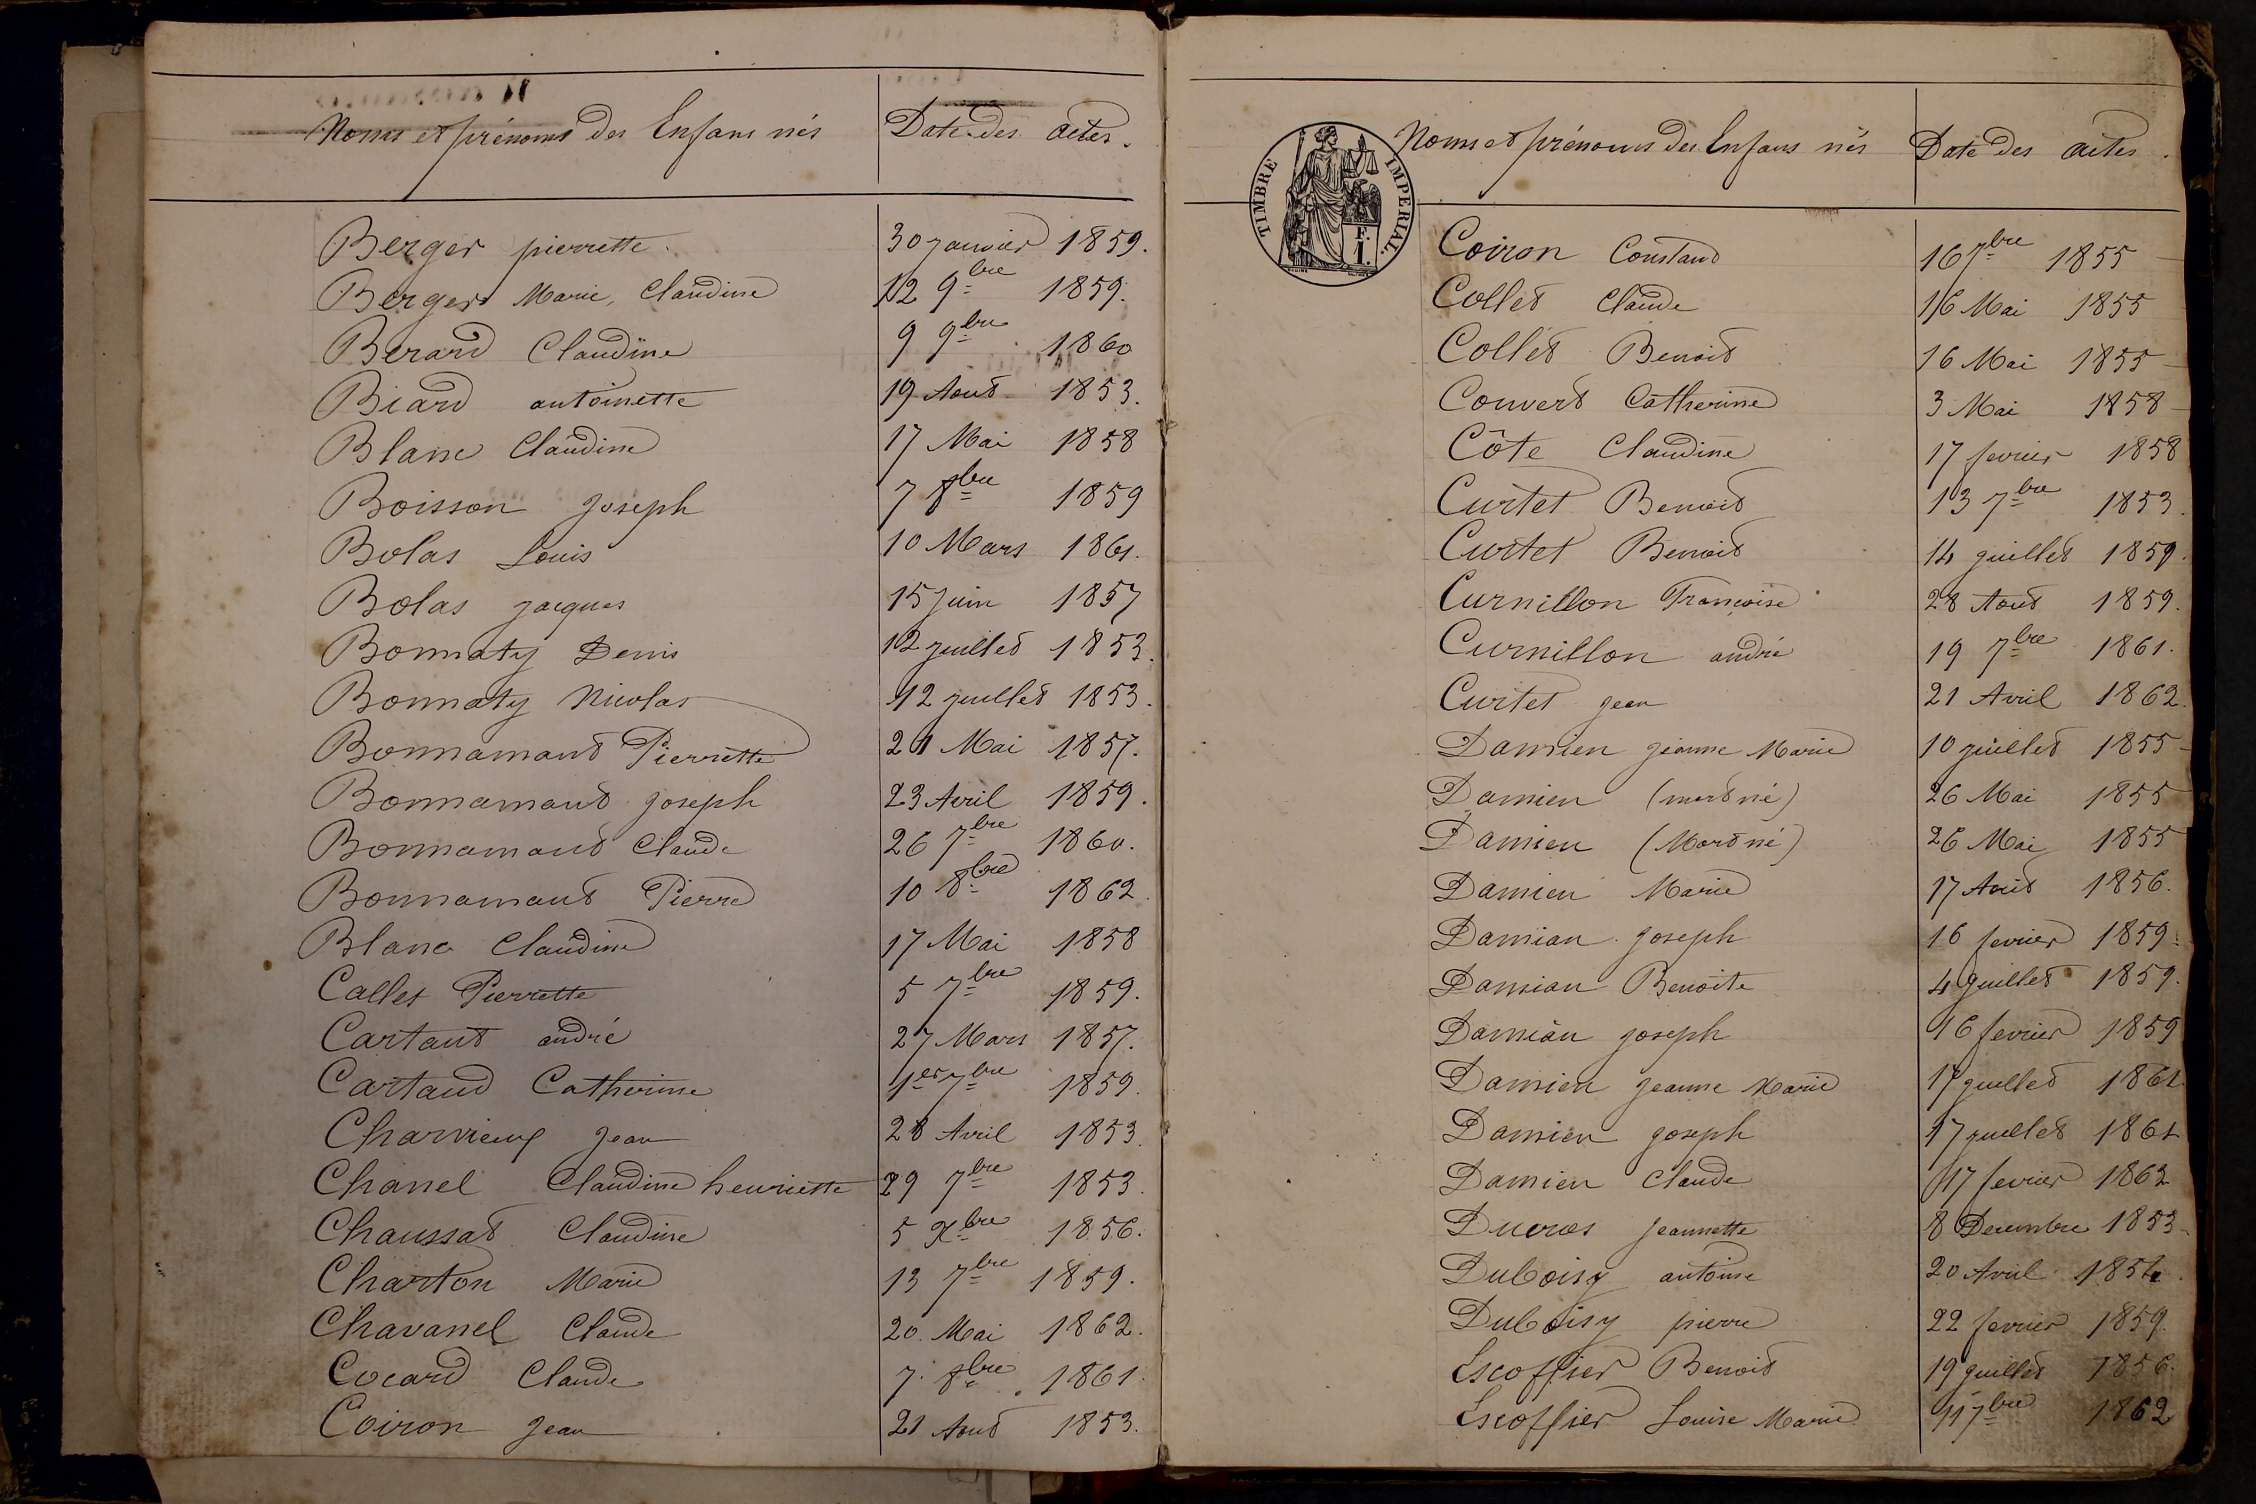 Noms et prénoms des Enfans nés Date des actes.
Berger pierrette 30 janvier 1859.
Berger Marie, Claudine 12 9bre 1859.
Berard Claudine 9 9bre 1860
Biard antoinette 19 Aout 1853.
Blanc Claudine 17 Mai 1858
Boisson Joseph 7 8bre 1859
Bolas Louis 10 Mars 1861.
Bolas jacques 15 juin 1857
Bonnaty Denis 12 juillet 1853.
Bonnaty Nicolas 12 juillet 1853.
Bonnamant Pierrette 21 Mai 1857.
Bonnamant joseph 23 Avril 1859.
Bonnamant Claude 26 7bre 1860.
Bonnamant Pierre 10 8bre 1862.
Blanc Claudine 17 Mai 1858
Callet Pierrette 5 7bre 1859.
Cartant andré 27 Mars 1857.
Cartand Catherine 1er 7bre 1859.
Charvieux Jean 28 Avril 1853.
Chanel Claudine henriette 29 7bre 1853.
Chaussat Claudine 5 Xbre 1856.
Charton Marie 13 7bre 1859.
Chavanel Claude 20. Mai 1862.
Cocard Claude 7. 8bre 1861.
Coiron Jean 21 Aout 1853.
TIMBRE IMPERIAL.
F.
1.
Noms et prénoms des Enfans nés Date des actes.
Coiron Constant 16 7bre 1855
Collet Claude 16 Mai 1855
Collet Benoit 16 Mai 1855
Convert Catherine 3 Mai 1858
Côte Claudine 17 fevrier 1858
Curtet Benoit 13 7bre 1853.
Curtet Benoit 14 juillet 1859.
Curnillon Françoise 28 Aout 1859.
Curnillon andré 19 7bre 1861.
Curtet jean 21 Avril 1862.
Damien jeanne Marie 10 juillet 1855
Damien (mort né) 26 Mai 1855
Damien (Mort né) 26 Mai 1855
Damien Marie 17 Aout 1856.
Damian joseph 16 fevrier 1859.
Damian Benoite 4 juillet 1859.
Damian joseph 16 fevrier 1859
Damien jeanne Marie 17 juillet 1861
Damien joseph 17 juillet 1861
Damien Claude 17 fevrier 1862
Ducros jeannette 8 Decembre 1853
Duboisy antoine 20 Avril 1854.
Duboisy pierre 22 fevrier 1859.
Escoffier Benoit 19 juillet 1856.
Escoffier Louise Marie 11 7bre 1862